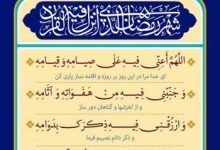 شهر رمضان الذی انزل فیه القرآن
اللهم أعنی فیه علی صیامه و قیامه
ای خدا مرا در این روز بر روزه و اقامه نماز یاری کن
و جنبنی فیه من هفواته و آثامه
و از لغزشها و گناهان دور ساز
و ارزقنی فیه ذکرک بدوامه
و ذکر دائم نصیبم فرما